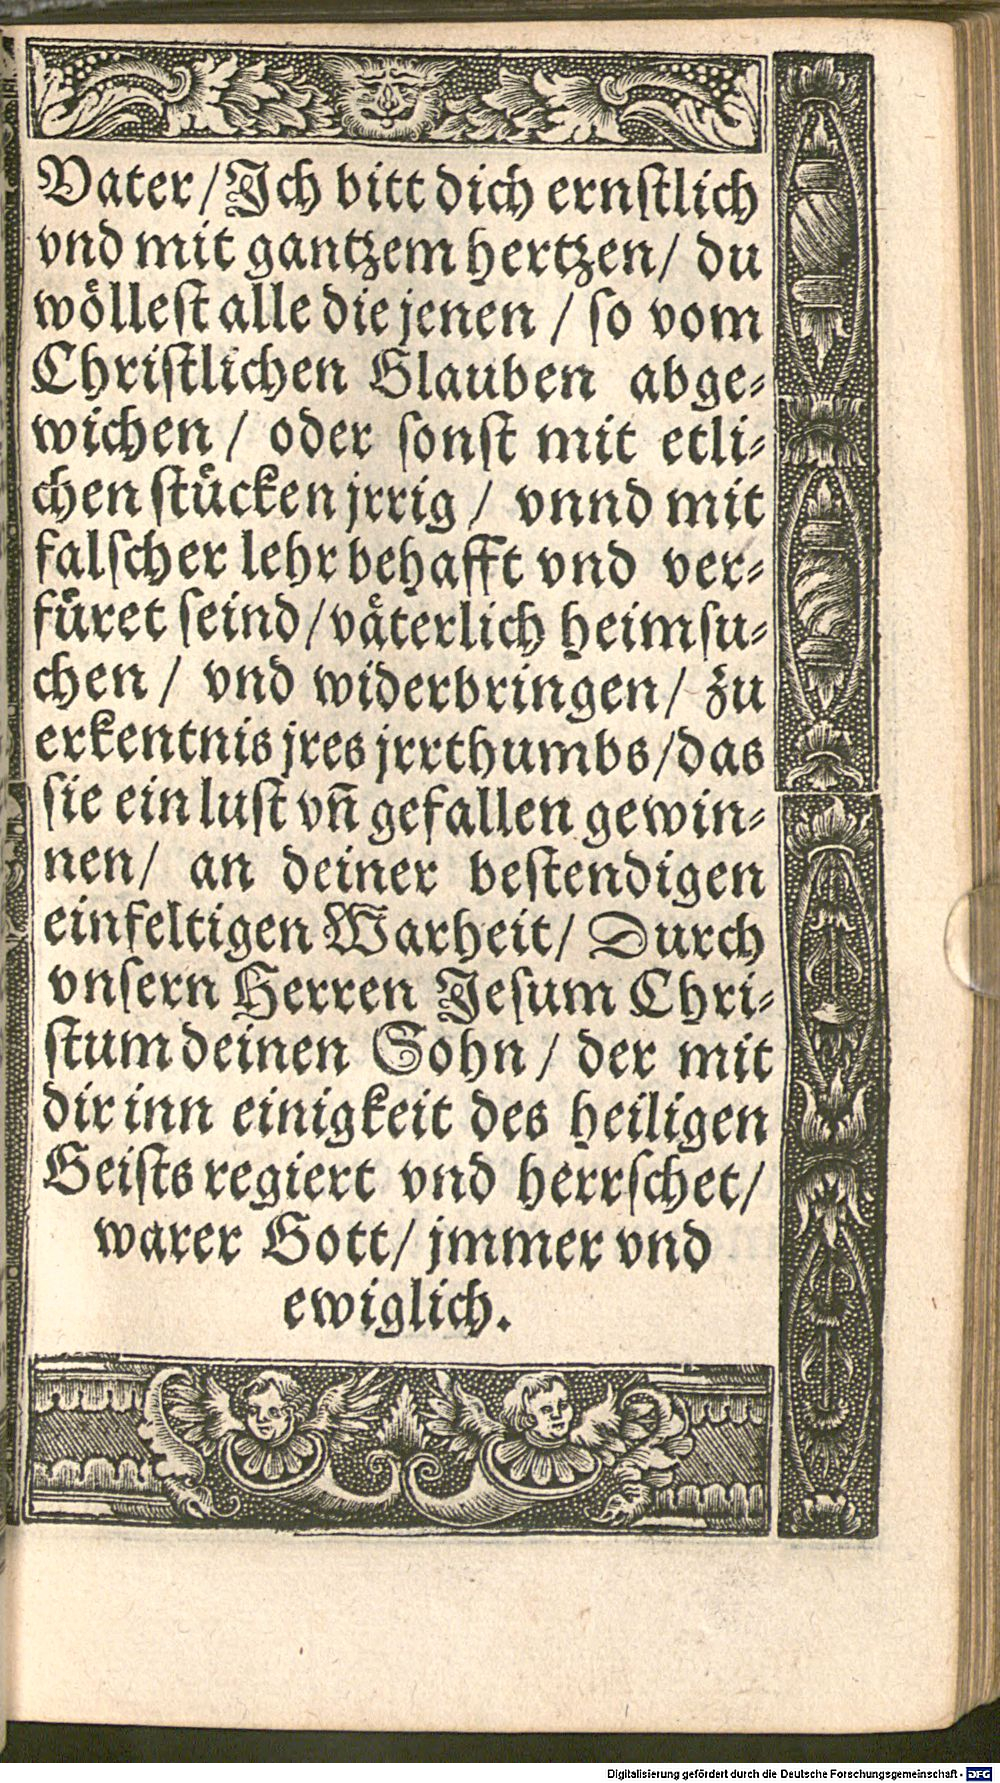 Vater / Ich bitt dich ernſtlich
vnd mit gantzem hertzen / du
woͤlleſt alle die jenen / ſo vom
Chriſtlichen Glauben abge⸗
wichen / oder ſonſt mit etli⸗
chen ſtuͤcken jrrig / vnnd mit
falſcher lehr behafft vnd ver⸗
fuͤret ſeind / vaͤterlich heimſu⸗
chen / vnd widerbringen / zu
erkentnis jres jrrthumbs / das
ſie ein luſt vñ gefallen gewin⸗
nen / an deiner beſtendigen
einfeltigen Warheit / Durch
vnſern Herren Jeſum Chri⸗
ſtum deinen Sohn / der mit
dir inn einigkeit des heiligen
Geiſts regiert vnd herrſchet /
warer Gott / jmmer vnd
ewiglich.
Digitalisierung gefördert durch die Deutsche Forschungsgemeinschaft - DFG